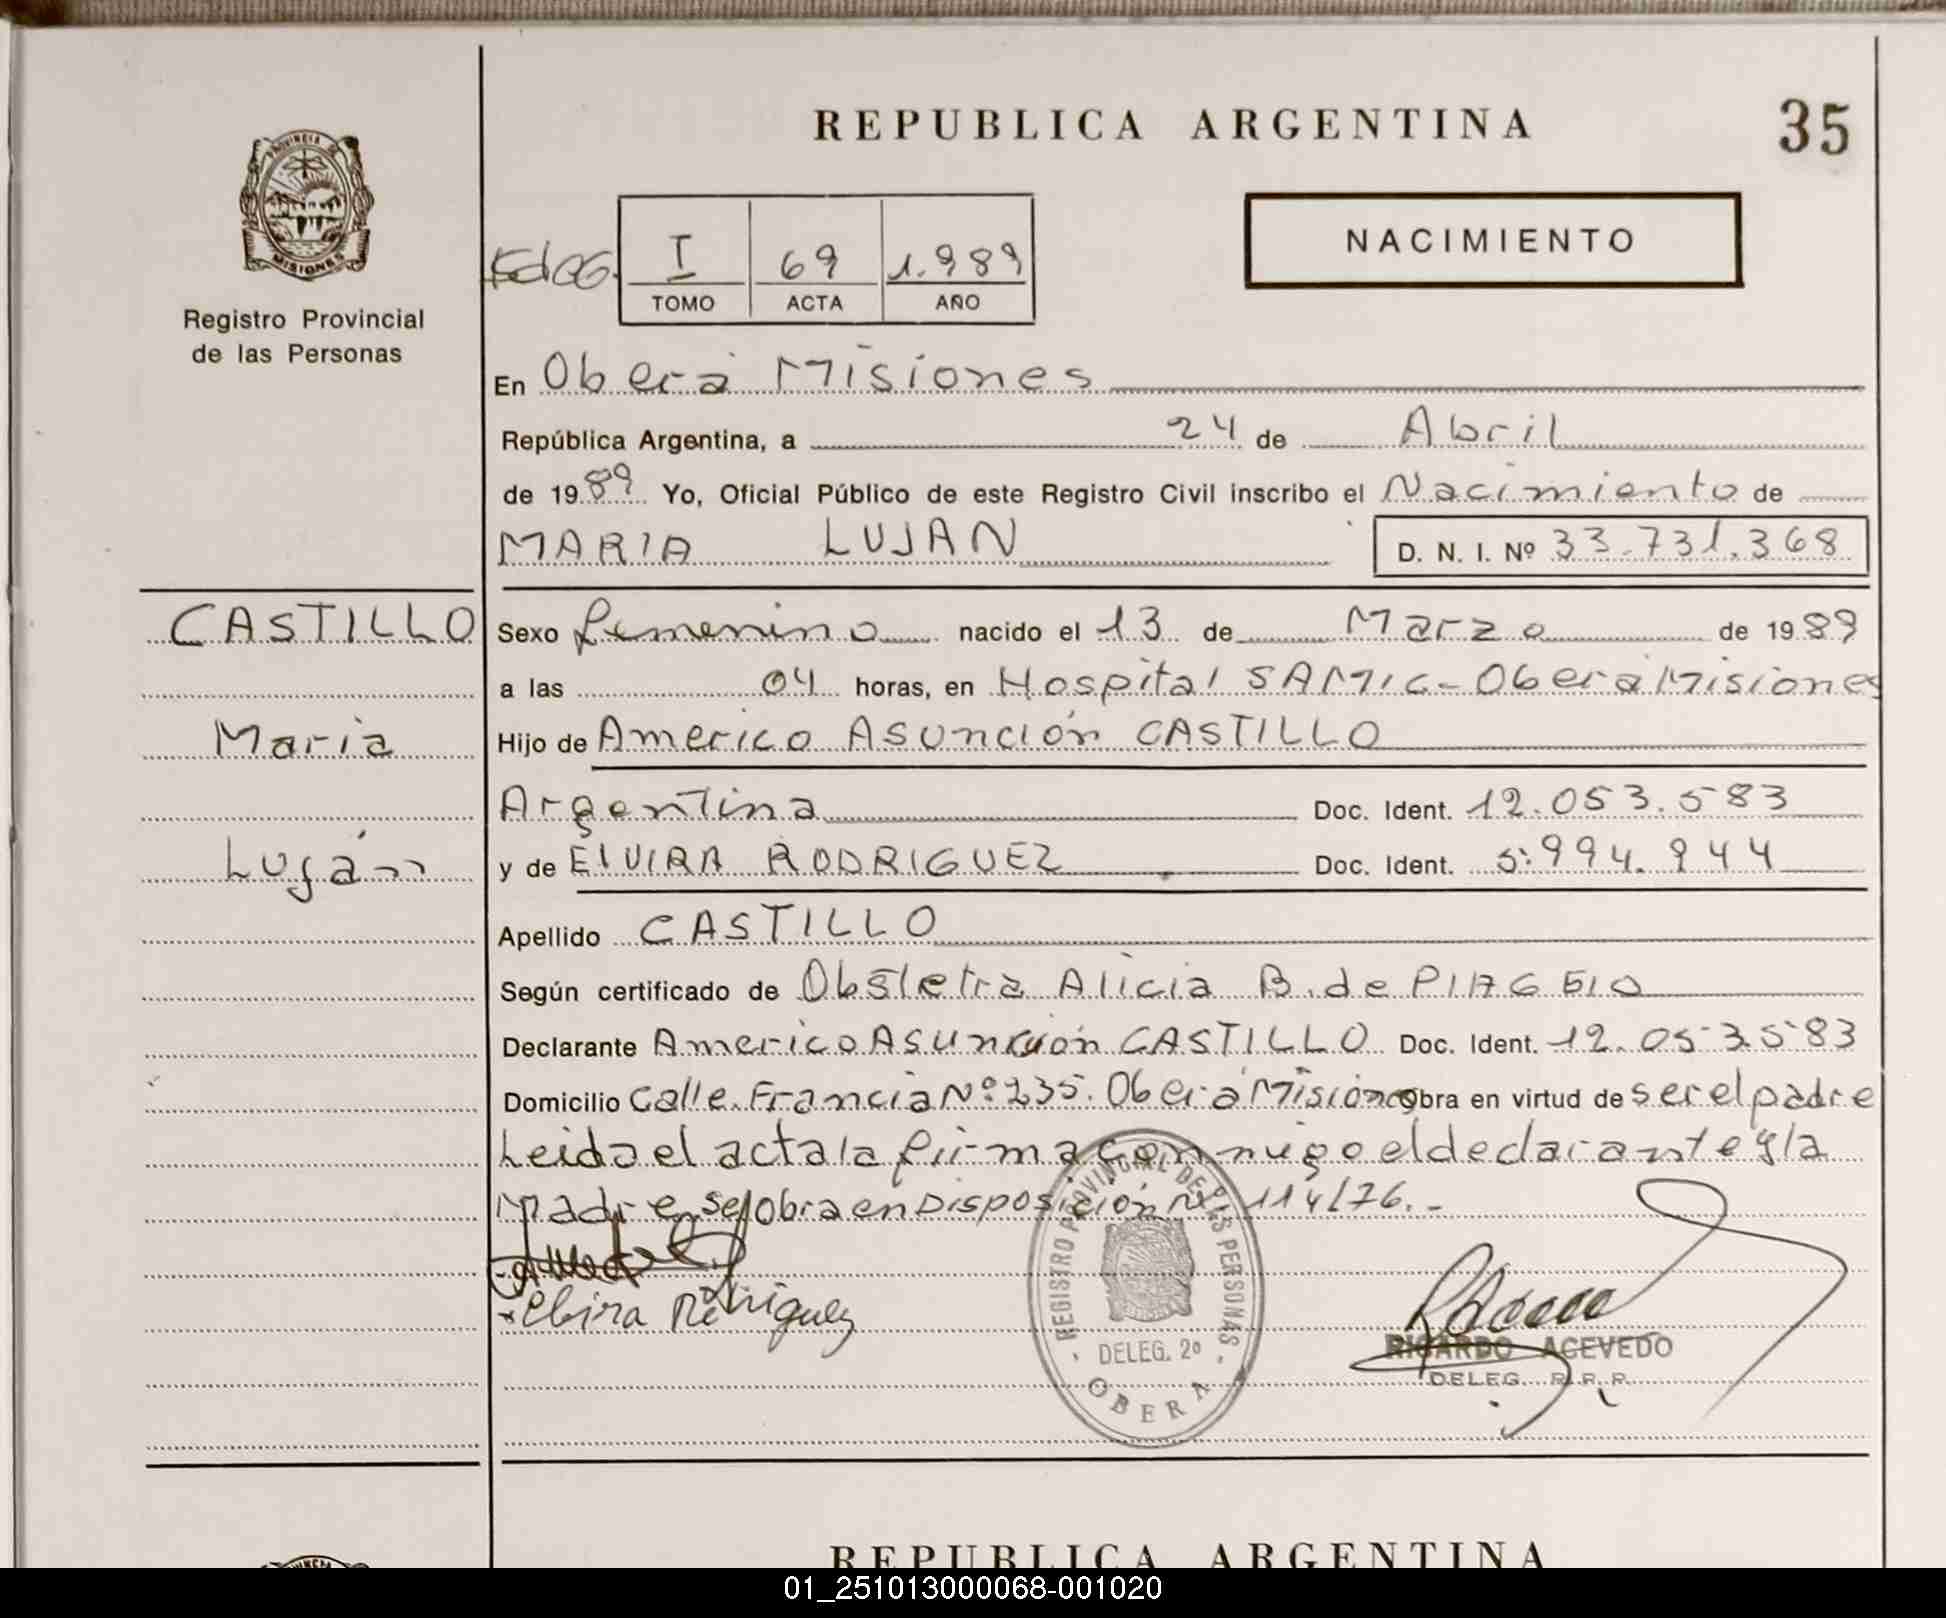 REPUBLICA ARGENTINA
35
PROVINCIA DE
MISIONES
Registro Provincial
de las Personas
NACIMIENTO
I 69 1.989
TOMO ACTA AÑO
En Oberá Misiones
República Argentina, a 24 de Abril
de 1989 Yo, Oficial Público de este Registro Civil inscribo el Nacimiento de
MARIA LUJAN D. N. I. Nº 33.731.368
CASTILLO
Maria
Luján
Sexo Femenino nacido el 13 de Marzo de 1989
a las 04 horas, en Hospital SAMIC - Oberá Misiones
Hijo de Americo Asunción CASTILLO
Argentina Doc. Ident. 12.053.583
y de ElVIRA RODRIGUEZ Doc. Ident. 5.994.944
Apellido CASTILLO
Según certificado de Obstetra Alicia B. de PIAGEIO
Declarante Americo Asunción CASTILLO Doc. Ident. 12.053.583
Domicilio Calle Francia Nº 235. Oberá Misiones obra en virtud de ser el padre
Leida el acta la firma conmigo el declarante y la
Madre, se obra en Disposición Nº 114/76.-
Elvira Rodriguez
REGISTRO PROVINCIAL DE LAS PERSONAS
DELEG. 2º
OBERA
RICARDO ACEVEDO
DELEG. R. P. P.
REPUBLICA ARGENTINA
01_251013000068-001020